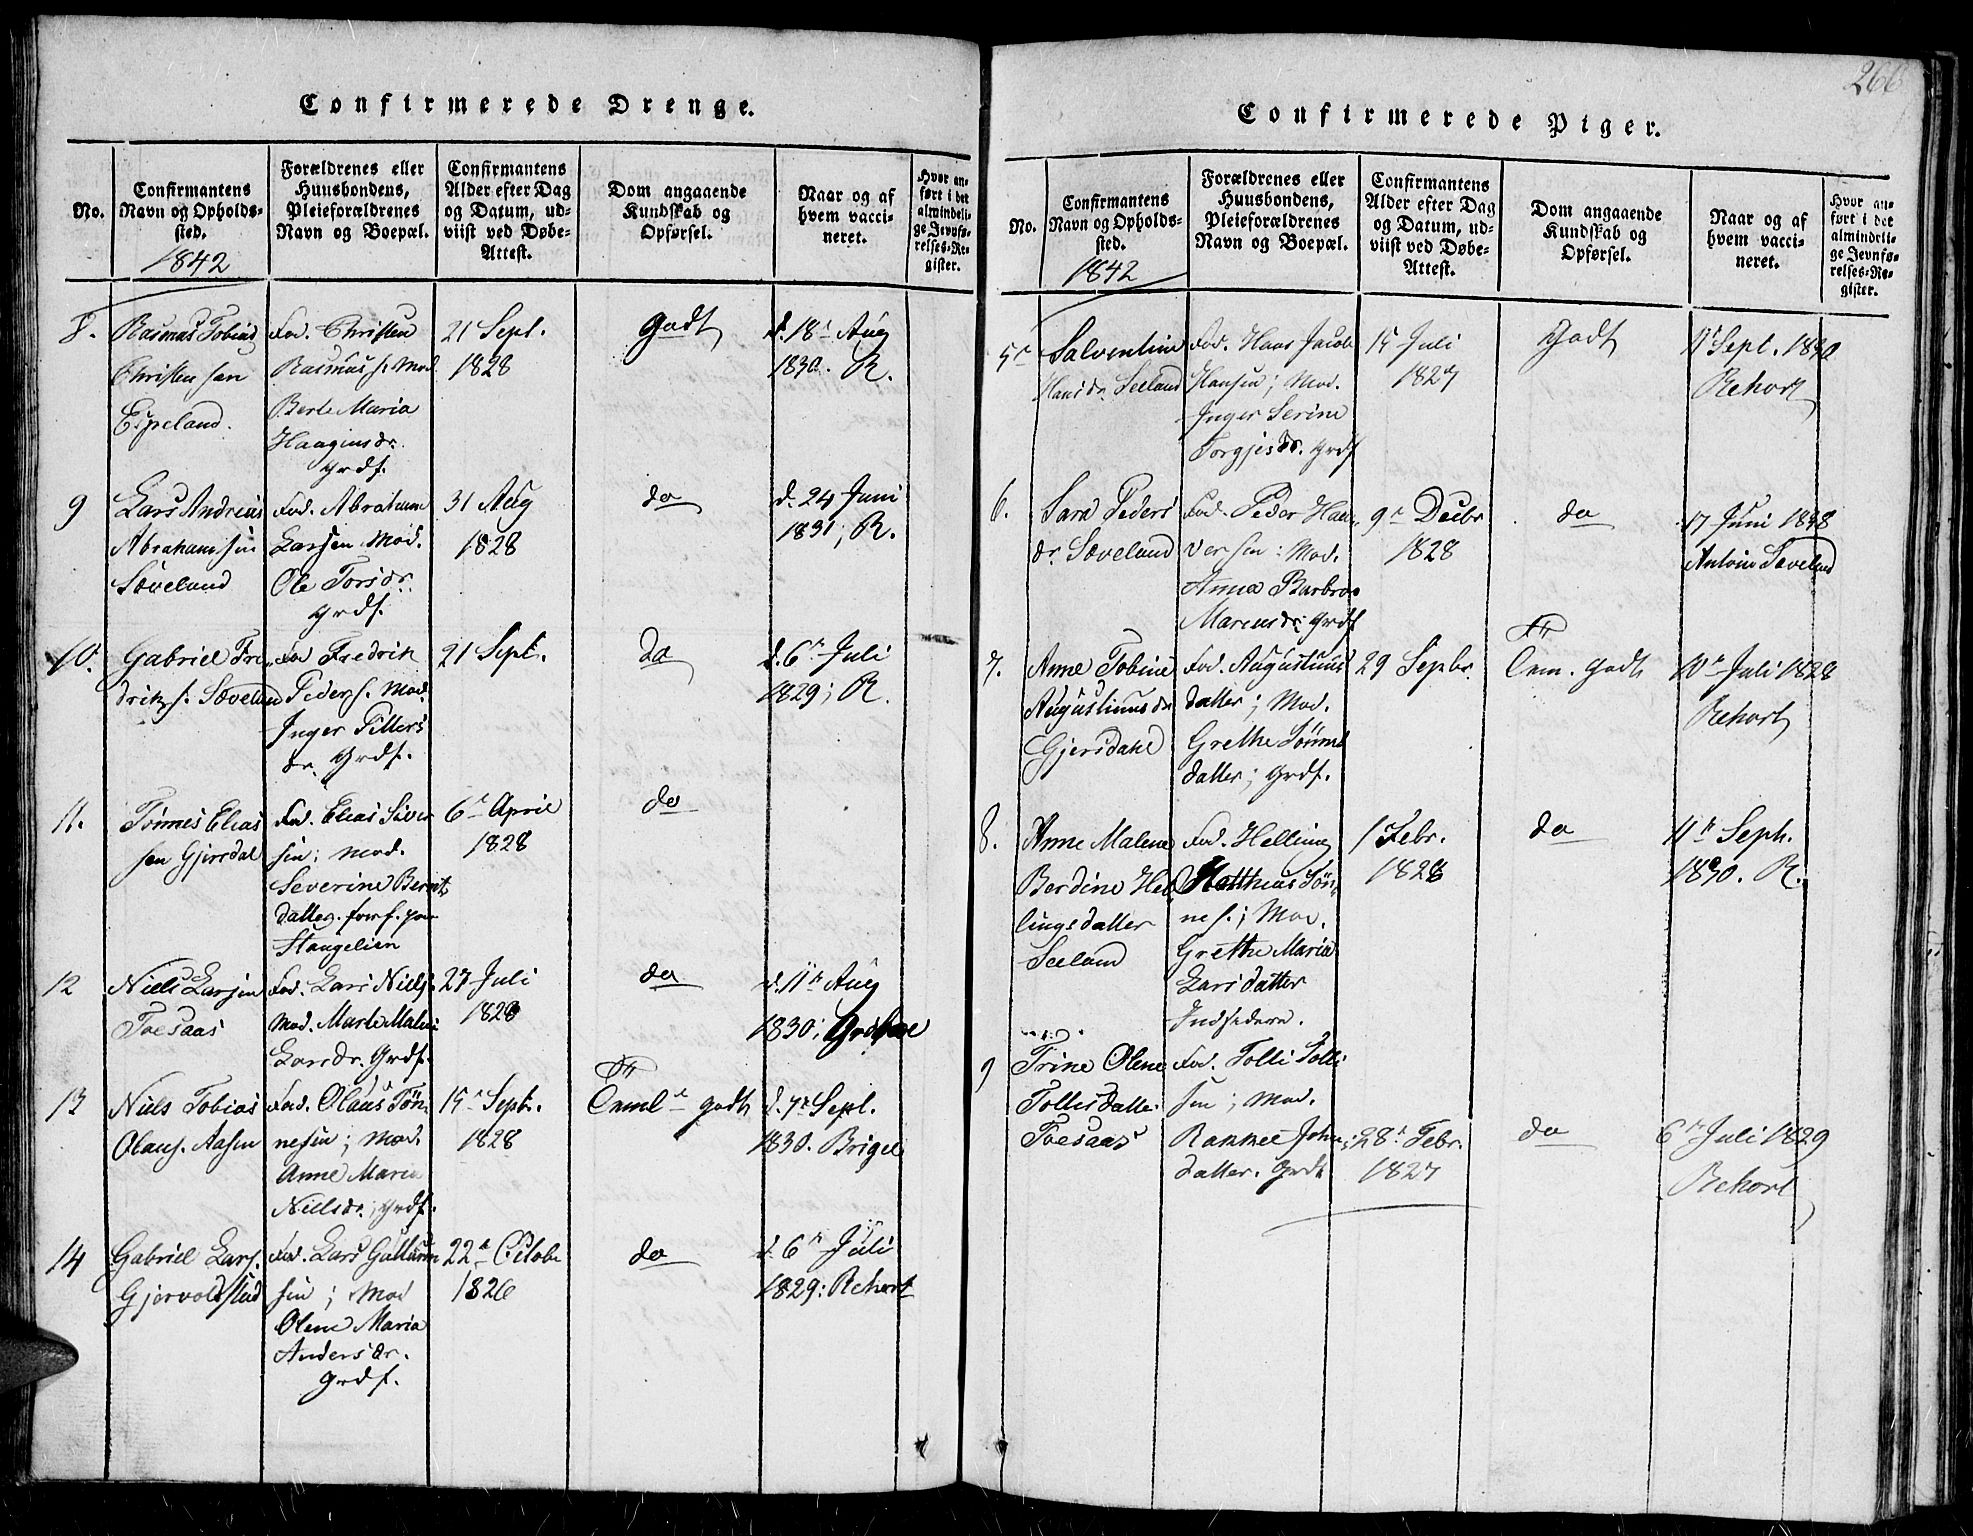 266
Confirmerede Drenge.
No.
Confirmantens
Navn og Opholds-
sted.
1842
Forældrenes eller
Huusbondens,
Pleieforældrenes
Navn og Boepæl.
Confirmantens
Alder efter Dag
og Datum, ud-
viist ved Døbe-
Attest.
Dom angaaende
Kundskab og
Opførsel.
Naar og af
hvem vacci-
neret.
Hvor an-
ført i det
almindeli-
ge Jevnfø-
relses-Re-
gister.
8.
Rasmus Tobias
Christensen
Espeland.
Fad. Christen
Rasmuss. Mod
Berte Maria
Haagensdr.
Grdf.
21 Sept.
1828
Godt
d. 18de Aug
1830. R.
9
Lars Andreas
Abrahamsen
Sæveland
Fad. Abraham
Larsen Mod.
Ole Torsdr.
Grdf.
31 Aug
1828
do
d. 24 Juni
1831; R.
10.
Gabriel Fre-
driks. Sæveland
Fad Fredrik
Peders. Mod.
Inger Pitters
dr. Grdf.
21 Sept.
do
d. 6te Juli
1829; R.
11.
Tønnes Elias
sen Gjersdal
Fad. Elias Siver
sen; Mod.
Severine Bernts
datter.
Stangelien
6te April
1828
do
12
Niels Larsen
Toesaas
Fad. Lars Niels.
Mod. Marte Malene
Larsdr. Grdf.
27 Juli
1828
do
d. 11te Aug
1830;
13
Niels Tobias
Olaus. Aasen
Fad. Olaus Tøn-
nesen; Mod.
Anne Maria
Nielsdr.; Grdf.
15de Septr.
1828
godt
d. 7de Sept.
1830. Brigel
14
Gabriel Lars.
Gjervoldstad
Fad. Lars Guttorm
sen; Mod
Olene Maria
Andersdr.
Grdf.
22de Octobr
1826
do
d. 6te Juli
1829: Rehort
Confirmerede Piger.
No.
Confirmantens
Navn og Opholds-
sted.
1842
Forældrenes eller
Huusbondens,
Pleieforældrenes
Navn og Boepæl.
Confirmantens
Alder efter Dag
og Datum, ud-
viist ved Døbe-
Attest.
Dom angaaende
Kundskab og
Opførsel.
Naar og af
hvem vacci-
neret.
Hvor an-
ført i det
almindeli-
ge Jevnfø-
relses-Re-
gister.
5
Salventine
Hansdr Seeland
Fad. Hans Jacob
Hansen; Mod.
Inger Serine
Torgjesdr. Grdf
15 Juli
1827
Godt
Sept. 1830
Rehort
6.
Sara Peders
dr. Sæveland
Fad. Peder Haa-
versen: Mod.
Anna Barbro
Marcusdr; Grdf
9de Decbr
1828
do
17 Juni 1838
Antoni Sæveland
7.
Anne Tobine
Augustinusdr
Gjersdahl
Fad. Augustinus
datter; Mod.
Grethe Tønnes
datter; Grdf.
29 Sepbr.
godt
10de Juli 1828
Rehort
8.
Anne Malene
Berdine Hel-
lingsdatter
Seeland
Fad. Helling
Matthias Tøn-
nes.; Mod.
Grethe Maria
Larsdatter
Indsidere.
1 Febr.
1828
do
11te Septr.
1830. R.
9
Trine Olene
Tollisdatter
Toesaas
Fad. Tolli Tolli
sen; Mod.
John-
datter. Grdf
28de Febr.
1827
do
6te Juli 1829
Rehort